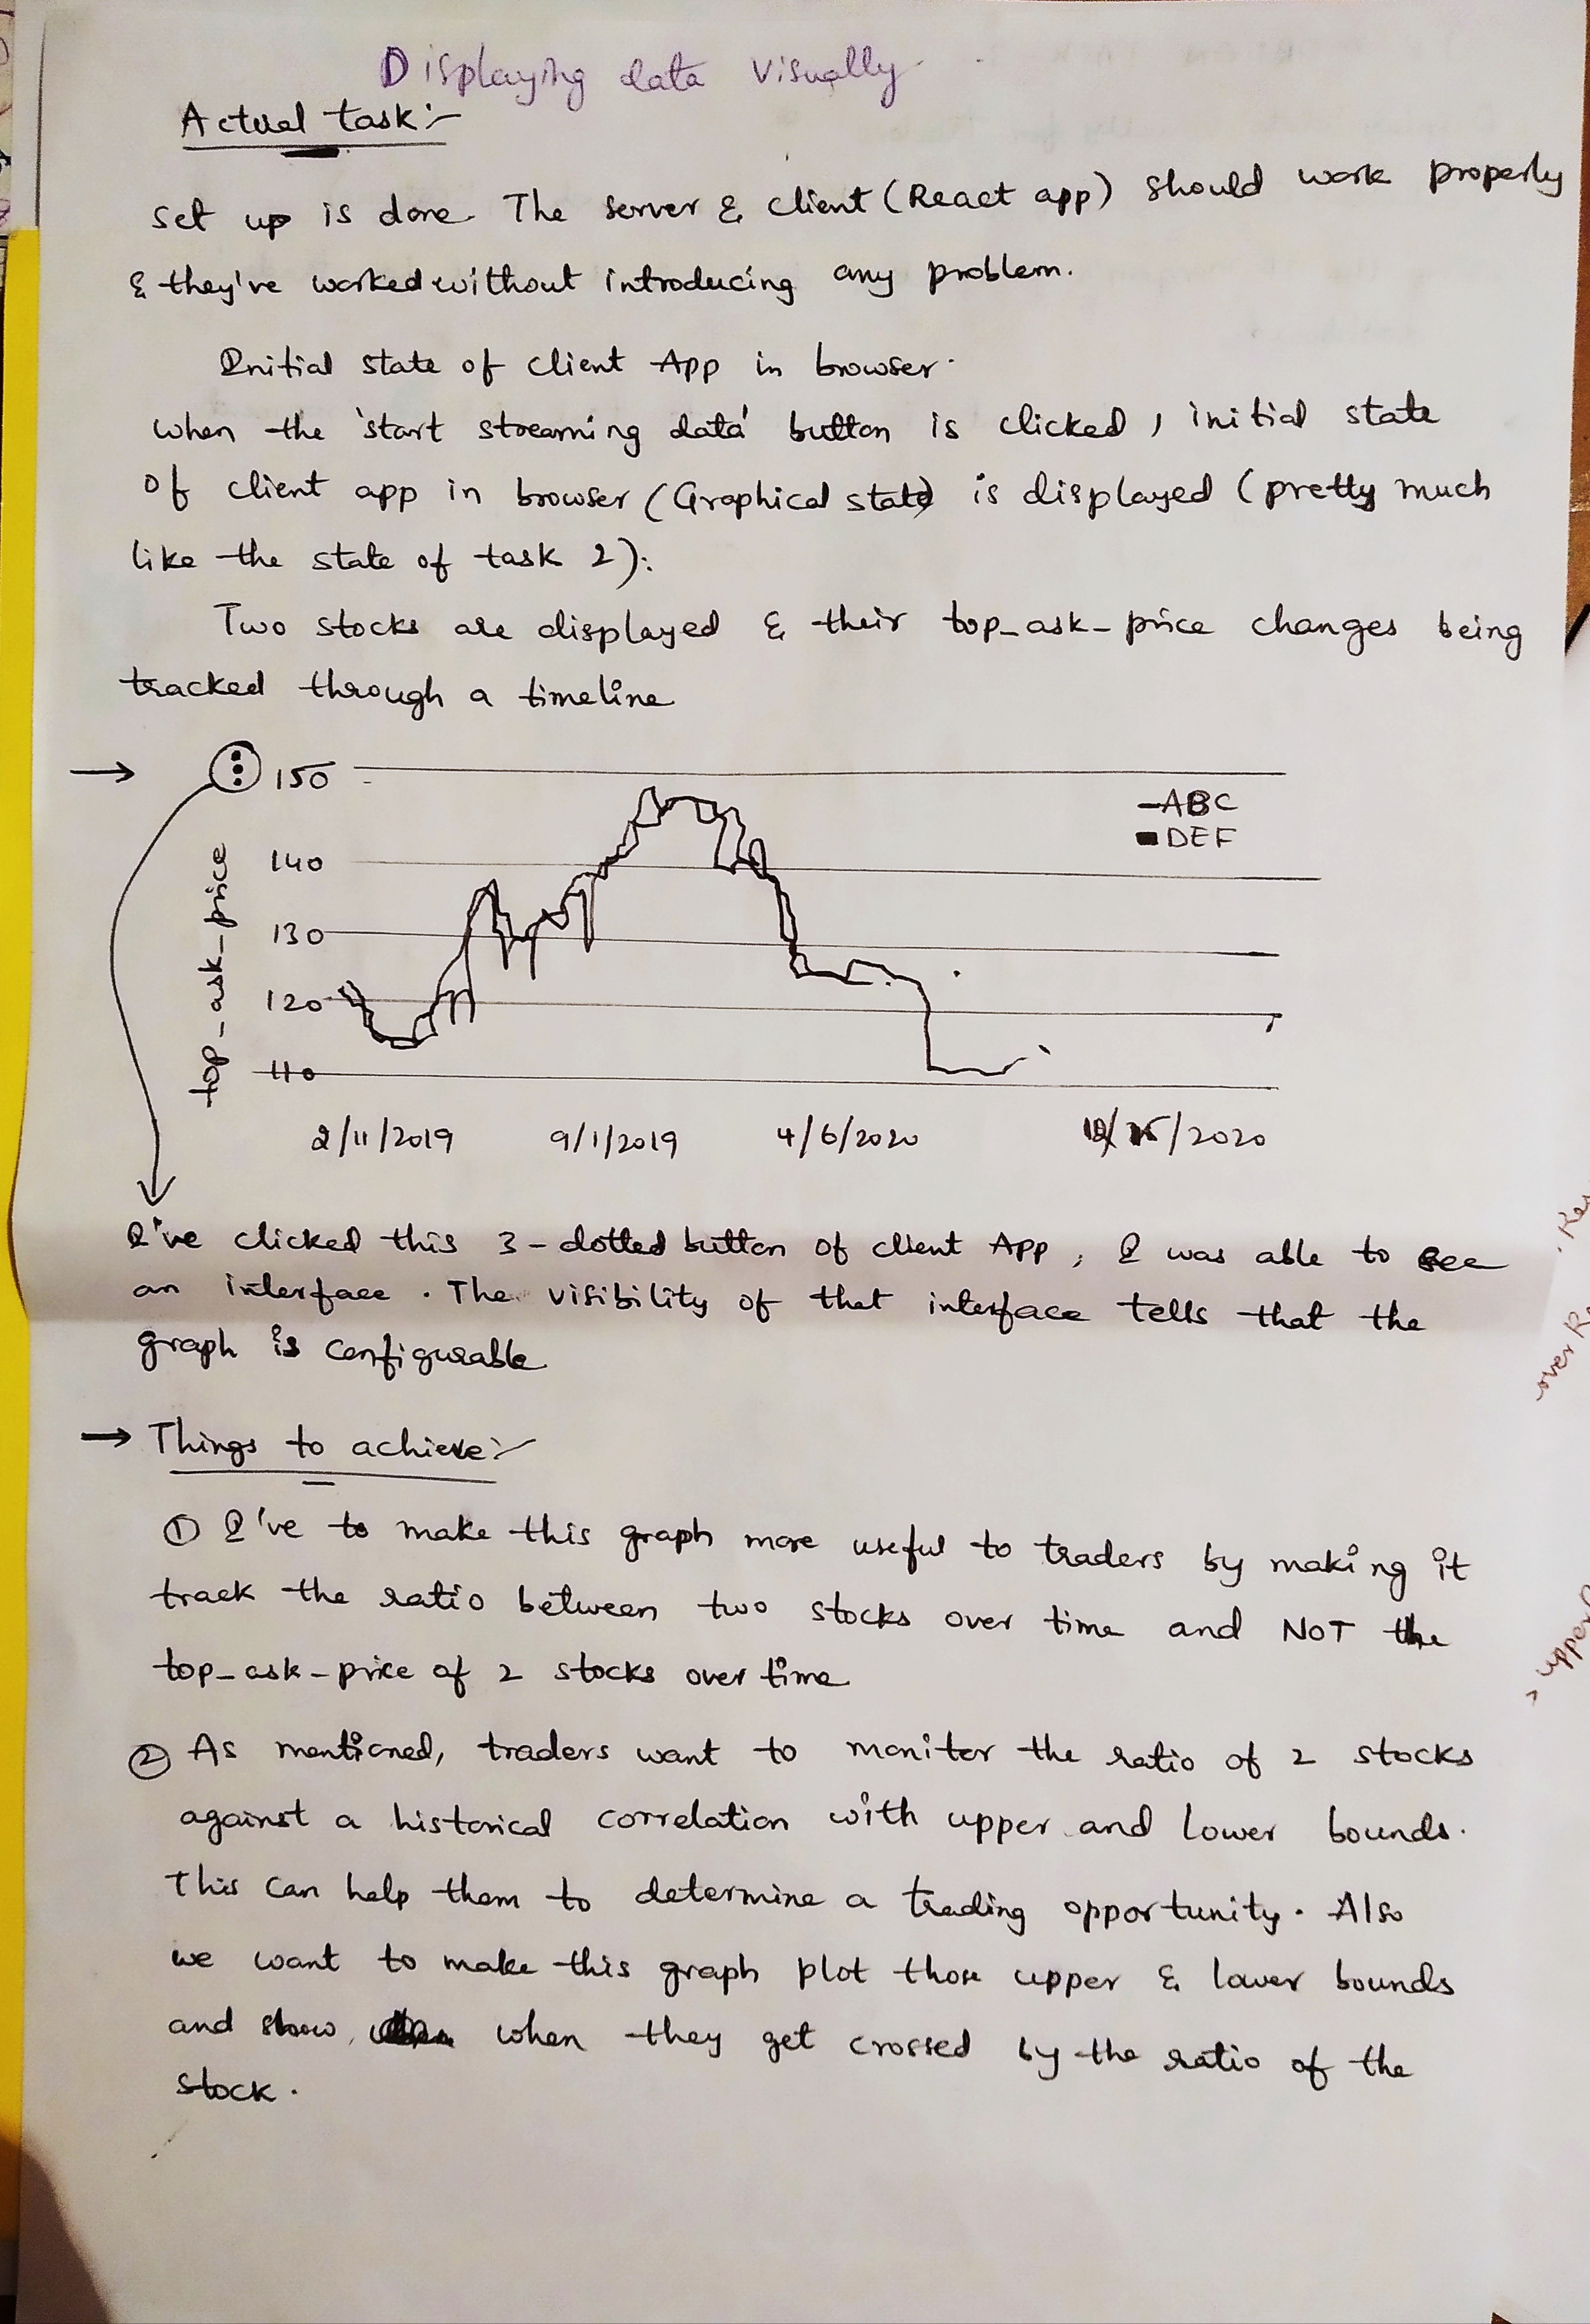 Displaying data visually
Actual task:-
set up is done. The server & client (React app) should work properly
& they've worked without introducing any problem.
Initial state of client App in browser.
when the 'start streaming data' button is clicked, initial state
of client app in browser (Graphical state) is displayed (pretty much
like the state of task 2):
Two stocks are displayed & their top_ask_price changes being
tracked through a timeline
→ 150
ABC
DEF
140
130
120
110
top_ask_price
2/11/2019 9/1/2019 4/6/2020 /2020
I've clicked this 3-dotted button of client App, I was able to see
an interface. The visibility of that interface tells that the
graph is configurable
→ Things to achieve:-
① I've to make this graph more useful to traders by making it
track the ratio between two stocks over time and NOT the
top_ask_price of 2 stocks over time
② As mentioned, traders want to moniter the ratio of 2 stocks
against a historical correlation with upper and lower bounds.
This can help them to determine a trading opportunity. Also
we want to make this graph plot those upper & lower bounds
and show, when they get crossed by the ratio of the
stock.
over
upper